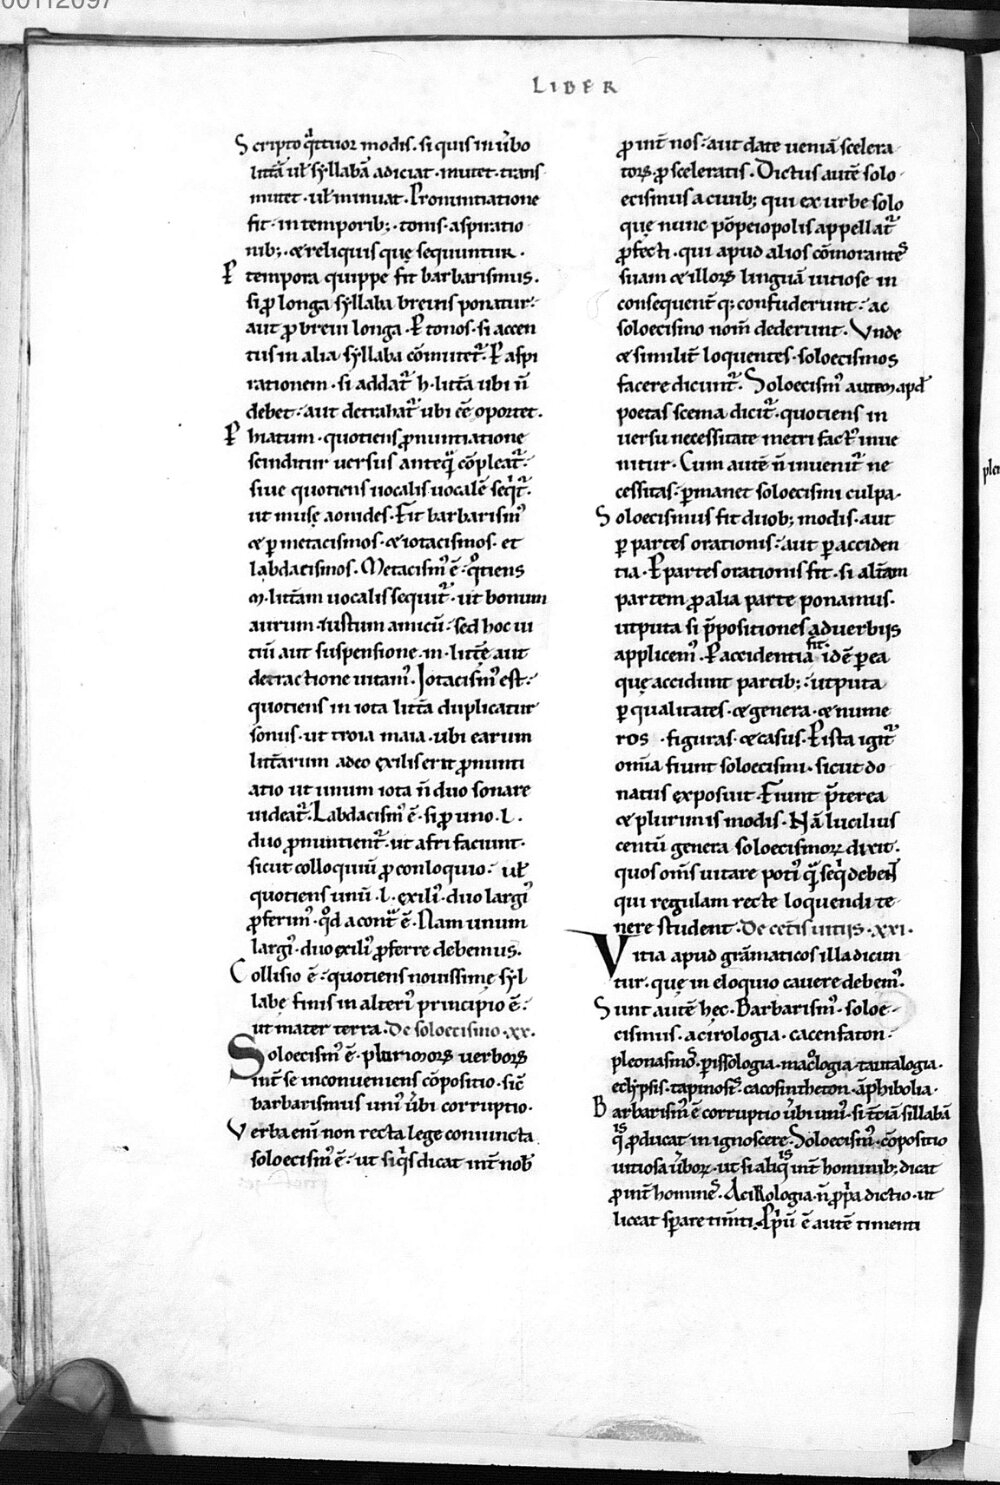 00112097
LIBER
Scripto q̃ttuor modis. si quis in ũbo
litt̃a ul̃ syllabã adiciat. mutet. trans
mutet. ul̃ minuat. Pronuntiatione
fit. in temporib;. tonis. aspiratio
nib;. & reliquis quę sequuntur.
P̱ tempora quippe fit barbarismus.
si ꝓ longa syllaba breuis ponatur:
aut ꝓ breui longa. P̱ tonos. si accen
tus in alia syllaba cõmutet᷑. P̱ aspi
rationem. si addat᷑ h. litt̃a ubi ñ
debet: aut detrahat᷑ ubi eẽ oportet.
P̱ hiatum. quotiens ꝓnuntiatione
scinditur uersus anteq̃ cõpleat᷑.
siue quotiens uocalis uocalẽ seq̇t᷑.
ut musę aonides. Fit barbarismꝰ
& ꝑ metacismos. & iotacismos. et
labdacismos. Metacismꝰ ẽ. q̊tiens
m. litt̃am uocalis sequit᷑. ut bonum
aurum. iustum amicũ: sed hoc ui
tiũ aut suspensione .m. litt̃ę aut
detractione uitamꝰ. Iotacismꝰ est:
quotiens in iota litt̃a duplicatur
sonus. ut troia maia. ubi earum
litt̃arum adeo exilis erit ꝓnunti
atio ut unum iota ñ duo sonare
uideat᷑. Labdacismꝰ ẽ. si ꝓ uno .l.
duo ꝓnuntient᷑. ut afri faciunt.
sicut colloquiũ ꝓ conloquio: ul̃
quotiens unũ .l. exiliꝰ. duo largiꝰ
ꝓferimꝰ. q̊d a cont̃ ẽ. Nam unum
largiꝰ. duo exiliꝰ ꝓferre debemus.
Collisio ẽ: quotiens nouissimę syl
labę finis in alteriꝰ principio ẽ:
ut mater terra. De soloecismo .xx.
Soloecismꝰ ẽ. plurimoꝝ uerboꝝ
int̃ se inconueniens cõpositio. sic̃
barbarismus uniꝰ ũbi corruptio.
Verba enĩ non recta lege coniuncta
soloecismꝰ ẽ: ut si q̇s dicat int̃ nob̃
ꝓ int̃ nos: aut date ueniã scelera
toꝝ. ꝓ sceleratis. Dictus autẽ solo
ecismus a ciuib; qui ex urbe solo
quę nunc põpeiopolis appellat᷑
ꝓfecti. qui apud alios cõmorantes
suam & illoꝝ linguã uitiose in
consequent̃ q; confuderunt: ac
soloecismo nom̃ dederunt. Vnde
& similit̃ loquentes. soloecismos
facere dicunt᷑. Soloecismꝰ autem apd̃
poetas scema dicit᷑. quotiens in
uersu necessitate metri factꝰ inue
nitur. Cum autẽ ñ inuenit᷑ ne
cessitas. ꝑmanet soloecismi culpa.
Soloecismus fit duob; modis. aut
ꝑ partes orationis: aut ꝑ acciden
tia. P̱ partes orationis fit. si alt̃am
partem ꝓ alia parte ponamus.
utputa si p̃positiones aduerbiis
applicemꝰ. P̱ accidentia fit. idẽ ꝑ ea
quę accidunt partib;: utputa
ꝑ qualitates. & genera. & nume
ros. figuras. & casus. P̱ ista igit᷑
om̃ia fiunt soloecismi. sicut do
natus exposuit. Fiunt p̃terea
& plurimis modis. Nã lucilius
centũ genera soloecismoꝝ dixit.
quos om̃s uitare potiꝰ q̃ seq̇ deben̄t
qui regulam recte loquendi te
nere student. De cet̃is uitiis .xxi.
Vitia apud grãmaticos illa dicun
tur. quę in eloquio cauere debemꝰ.
Sunt autẽ hęc. Barbarismꝰ. soloe
cismus. acirologia. cacenfaton:
pleonasmꝰ. ꝑissologia. mac̊logia. tautalogia.
eclypsis. tapinosis. cacosintheton. ãphibolia.
Barbarismꝰ ẽ corruptio ũbi uniꝰ. si t̃ciã sillabã
q̇s ꝓducat in ignoscere. Soloecismꝰ. cõpositio
uitiosa ũboꝝ. ut si aliq̇s int̃ hominib; dicat
ꝓ int̃ homines. Acirologia. ñ ꝓp̃a dictio. ut
liceat sꝑare tim̃ti. Pp̃ũ ẽ autẽ timenti